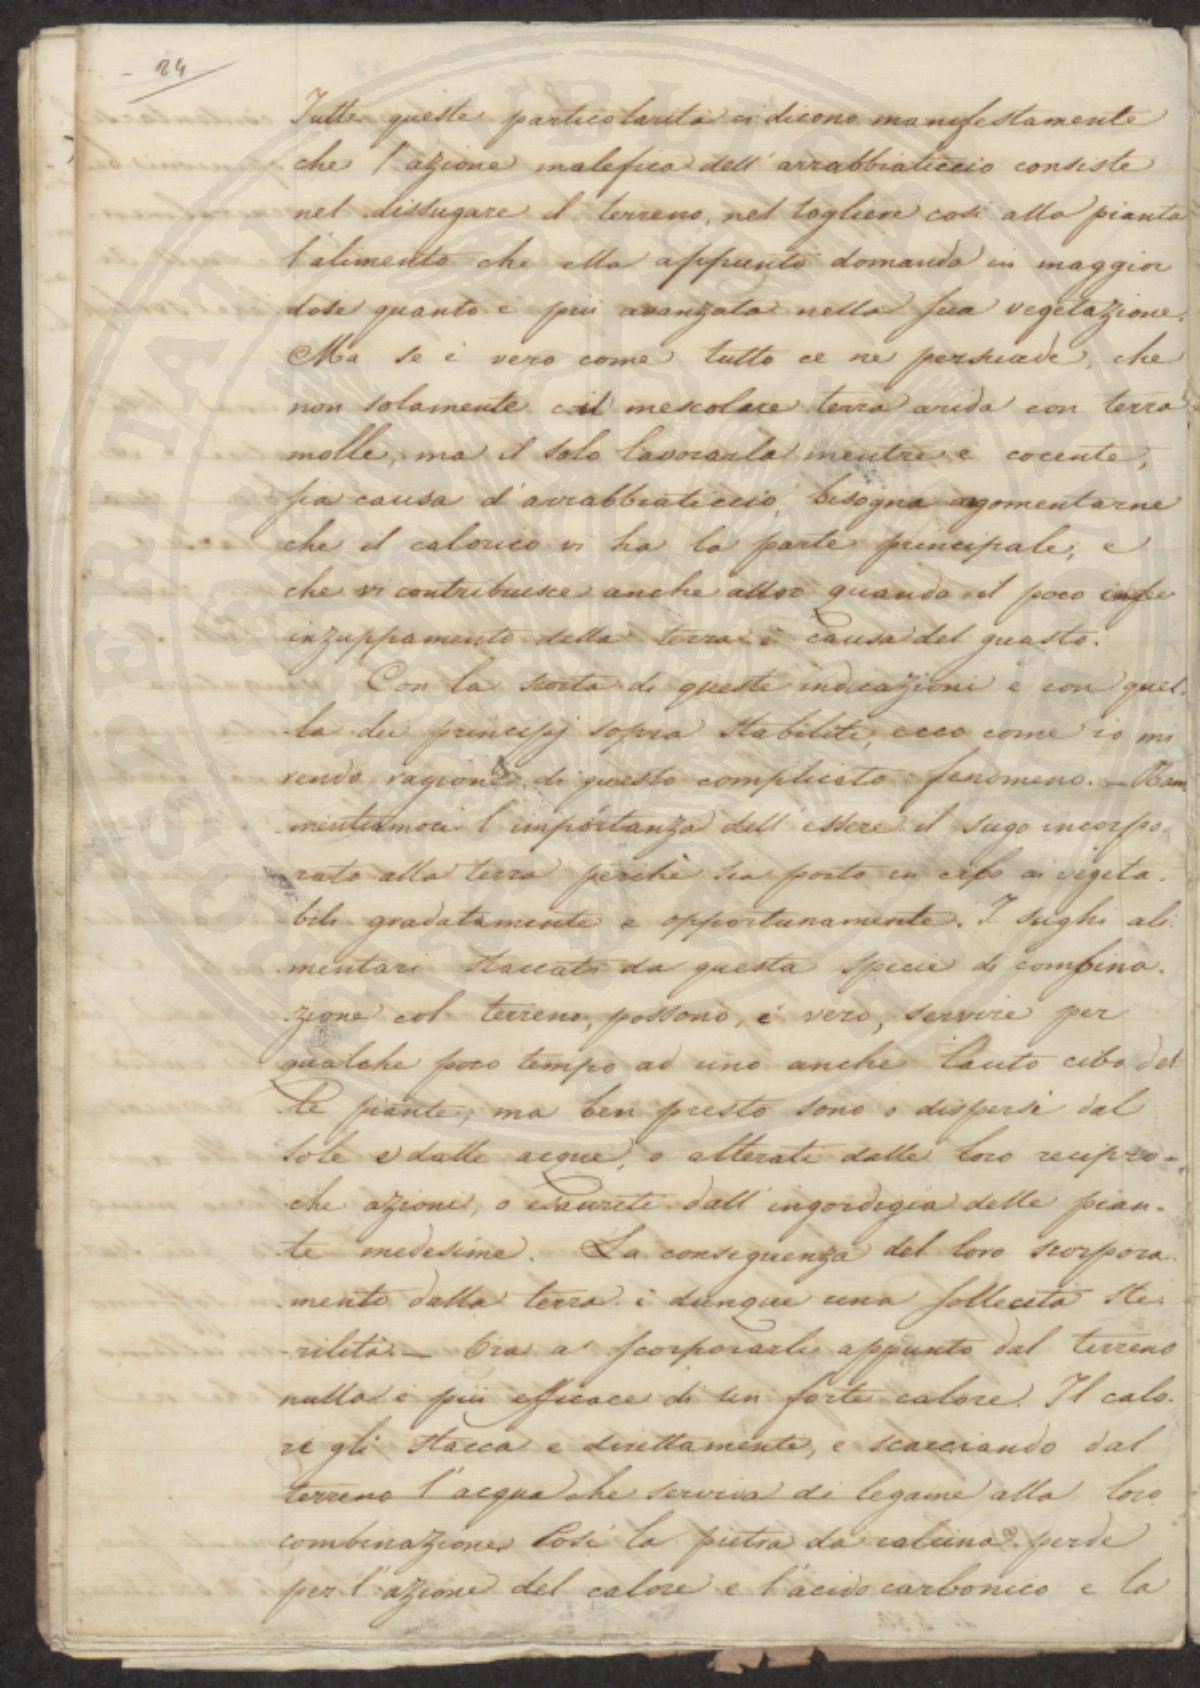 24
Tutte queste particolarità ci dicono manifestamente
che l'azione malefica dell'arrabbiaticcio consiste
nel dissugare il terreno, nel togliere così alla pianta
l'alimento che ella appunto domanda in maggior
dose quanto è più avanzata nella sua vegetazione.
Ma se è vero come tutto ce ne persuade, che
non solamente il mescolare terra arida con terra
molle, ma il solo lavorarla mentre è cocente,
fia causa d'arrabbiaticcio, bisogna argomentarne
che il calorico vi ha la parte principale, e
che vi contribuisce anche allor quando il poco
inzuppamento della terra è causa del guasto.
Con la scorta di queste indicazioni e con quel-
la dei principj sopra stabiliti, ecco come io mi
rendo ragione di questo complicato fenomeno. — Ram
mentiamoci l'importanza dell'essere il sugo incorpo-
rato alla terra perchè sia porto in cibo ai vegeta-
bili gradatamente e opportunamente. I sughi ali-
mentari staccati da questa specie di combina-
zione col terreno, possono, è vero, servire per
qualche poco tempo ad uno anche lauto cibo del
le piante, ma ben presto sono o dispersi dal
sole e dalle acque, o alterati dalle loro recipro-
che azioni, o esauriti dall'ingordigia delle pian-
te medesime. La conseguenza del loro scorpora-
mento dalla terra è dunque una sollecita ste-
rilità. — Ora a scorporarli appunto dal terreno
nulla è più efficace di un forte calore. Il calo-
re gli stacca e direttamente, e scacciando dal
terreno l'acqua che serviva di legame alla loro
combinazione. Così la pietra da calcina perde
per l'azione del calore e l'acido carbonico e la